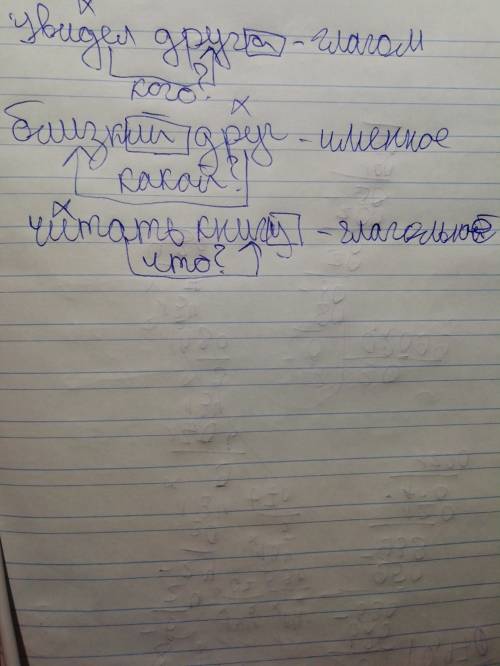 увидел друга - глагол
кого?
близкий друг - именное
какой?
читать книгу - глагольное
что?